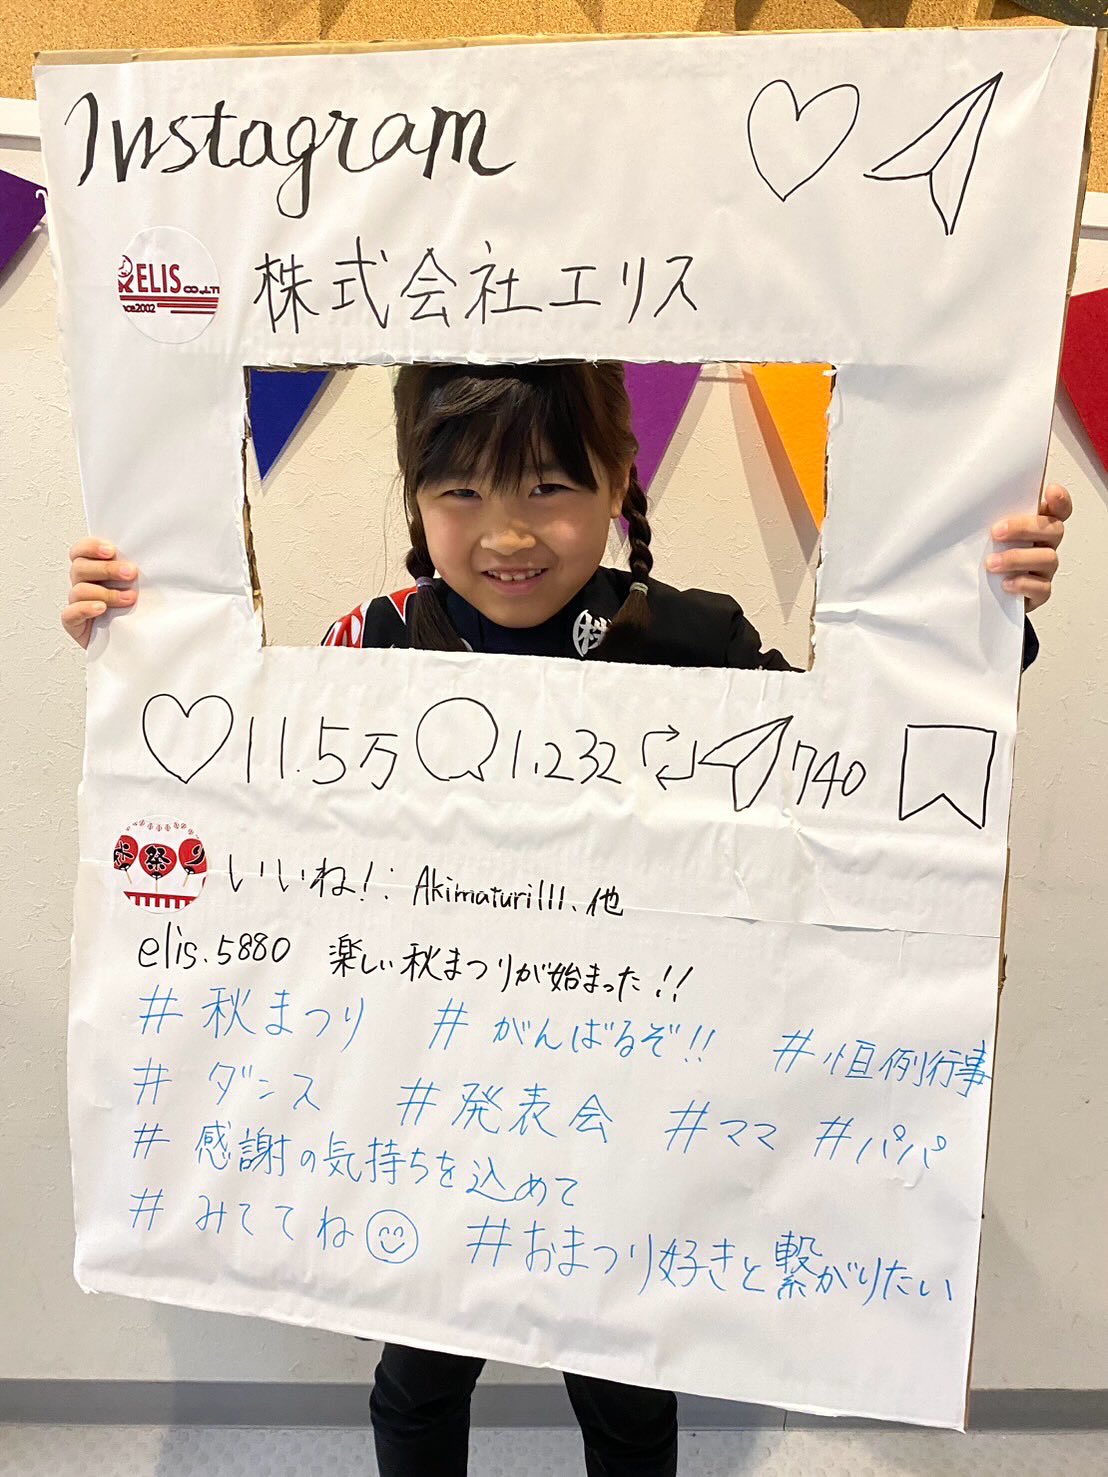 Instagram
ELIS CO.,LT
nce2002
株式会社エリス
秋
11.5万 1,232 740
祭り
いいね!: Akimaturi111、他
elis.5880 楽しい秋まつりが始まった!!
#秋まつり #がんばるぞ!! #恒例行事
#ダンス #発表会 #ママ #パパ
#感謝の気持ちを込めて
#みててね #おまつり好きと繋がりたい